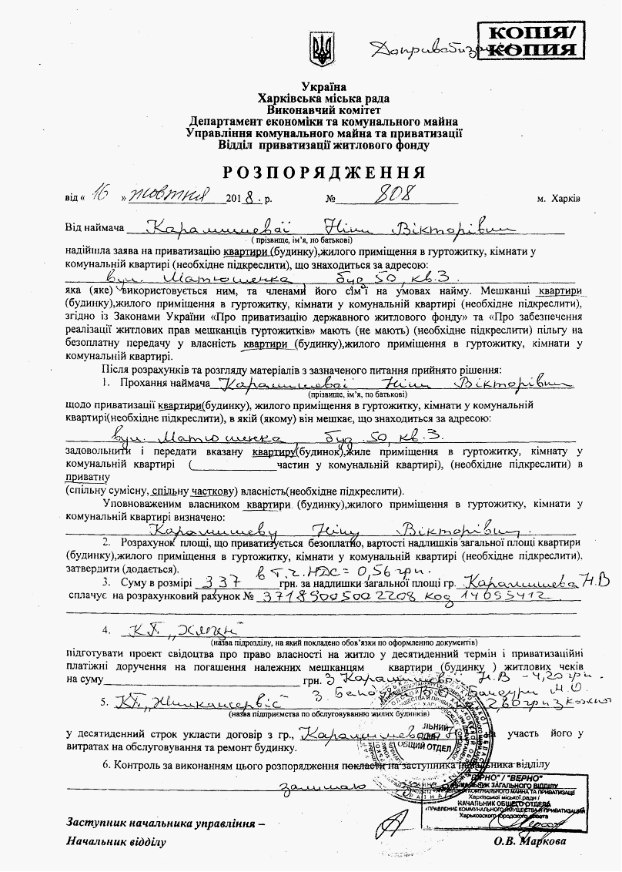 КОПІЯ/
КОПИЯ
Україна
Харківська міська рада
Виконавчий комітет
Департамент економіки та комунального майна
Управління комунального майна та приватизації
Відділ приватизації житлового фонду
РОЗПОРЯДЖЕННЯ
від « 16 » жовтня 2018 р. № 808 м. Харків
Від наймача Карамишевої Ніни Вікторівни
( прізвище, ім’я, по батькові)
надійшла заява на приватизацію квартири (будинку),жилого приміщення в гуртожитку, кімнати у
комунальній квартирі (необхідне підкреслити), що знаходиться за адресою:
вул. Матюшенка буд 50, кв.3.
яка (яке) використовується ним, та членами його сім’ї на умовах найму. Мешканці квартири
(будинку),жилого приміщення в гуртожитку, кімнати у комунальній квартирі (необхідне підкреслити),
згідно із Законами України «Про приватизацію державного житлового фонду» та «Про забезпечення
реалізації житлових прав мешканців гуртожитків» мають (не мають) (необхідне підкреслити) пільгу на
безоплатну передачу у власність квартири (будинку),жилого приміщення в гуртожитку, кімнати у
комунальній квартирі.
Після розрахунків та розгляду матеріалів з зазначеного питання прийнято рішення:
1. Прохання наймача Карамишевої Ніни Вікторівни
(прізвище, ім’я, по батькові)
щодо приватизації квартири(будинку), жилого приміщення в гуртожитку, кімнати у комунальній
квартирі(необхідне підкреслити), в якій (якому) він мешкає, що знаходиться за адресою:
вул. Матюшенка буд. 50, кв.3.
задовольнити і передати вказану квартиру(будинок),жиле приміщення в гуртожитку, кімнату у
комунальній квартирі (            частин у комунальній квартирі), (необхідне підкреслити) в
приватну
(спільну сумісну, спільну часткову) власність(необхідне підкреслити).
Уповноваженим власником квартири (будинку),жилого приміщення в гуртожитку, кімнати у
комунальній квартирі визначено:
Карамишеву Ніну Вікторівну.
2. Розрахунок площі, що приватизується безоплатно, вартості надлишків загальної площі квартири
(будинку),жилого приміщення в гуртожитку, кімнати у комунальній квартирі (необхідне підкреслити).
затвердити (додається). в т.ч. НДС = 0,56 грн.
3. Суму в розмірі 3 37 грн. за надлишки загальної площі гр. Карамишева Н.В
сплачує на розрахунковий рахунок № 37189005002208 код 14095412
4.
(назва підрозділу, на який покладено обов’язки по оформленню документів)
підготувати проект свідоцтва про право власності на житло у десятиденний термін і приватизаційні
платіжні доручення на погашення належних мешканцям квартири (будинку ) житлових чеків
на суму грн. З Карамишевої Н.В -4,20 грн.
5. КП „Жилкомсервіс"
(назва підприємства по обслуговуванню жилих будинків)
у десятиденний строк укласти договір з гр., Карамишевою на участь його у
витратах на обслуговування та ремонт будинку.
6. Контроль за виконанням цього розпорядження покласти на заступника начальника відділу
залишаю
ОБЩИЙ ОТДЕЛ
"ВІРНО" / "ВЕРНО"
НАЧАЛЬНИК ЗАГАЛЬНОГО ВІДДІЛУ
НАЧАЛЬНИК ОБЩЕГО ОТДЕЛА
Заступник начальника управління –
Начальник відділу О.В. Маркова